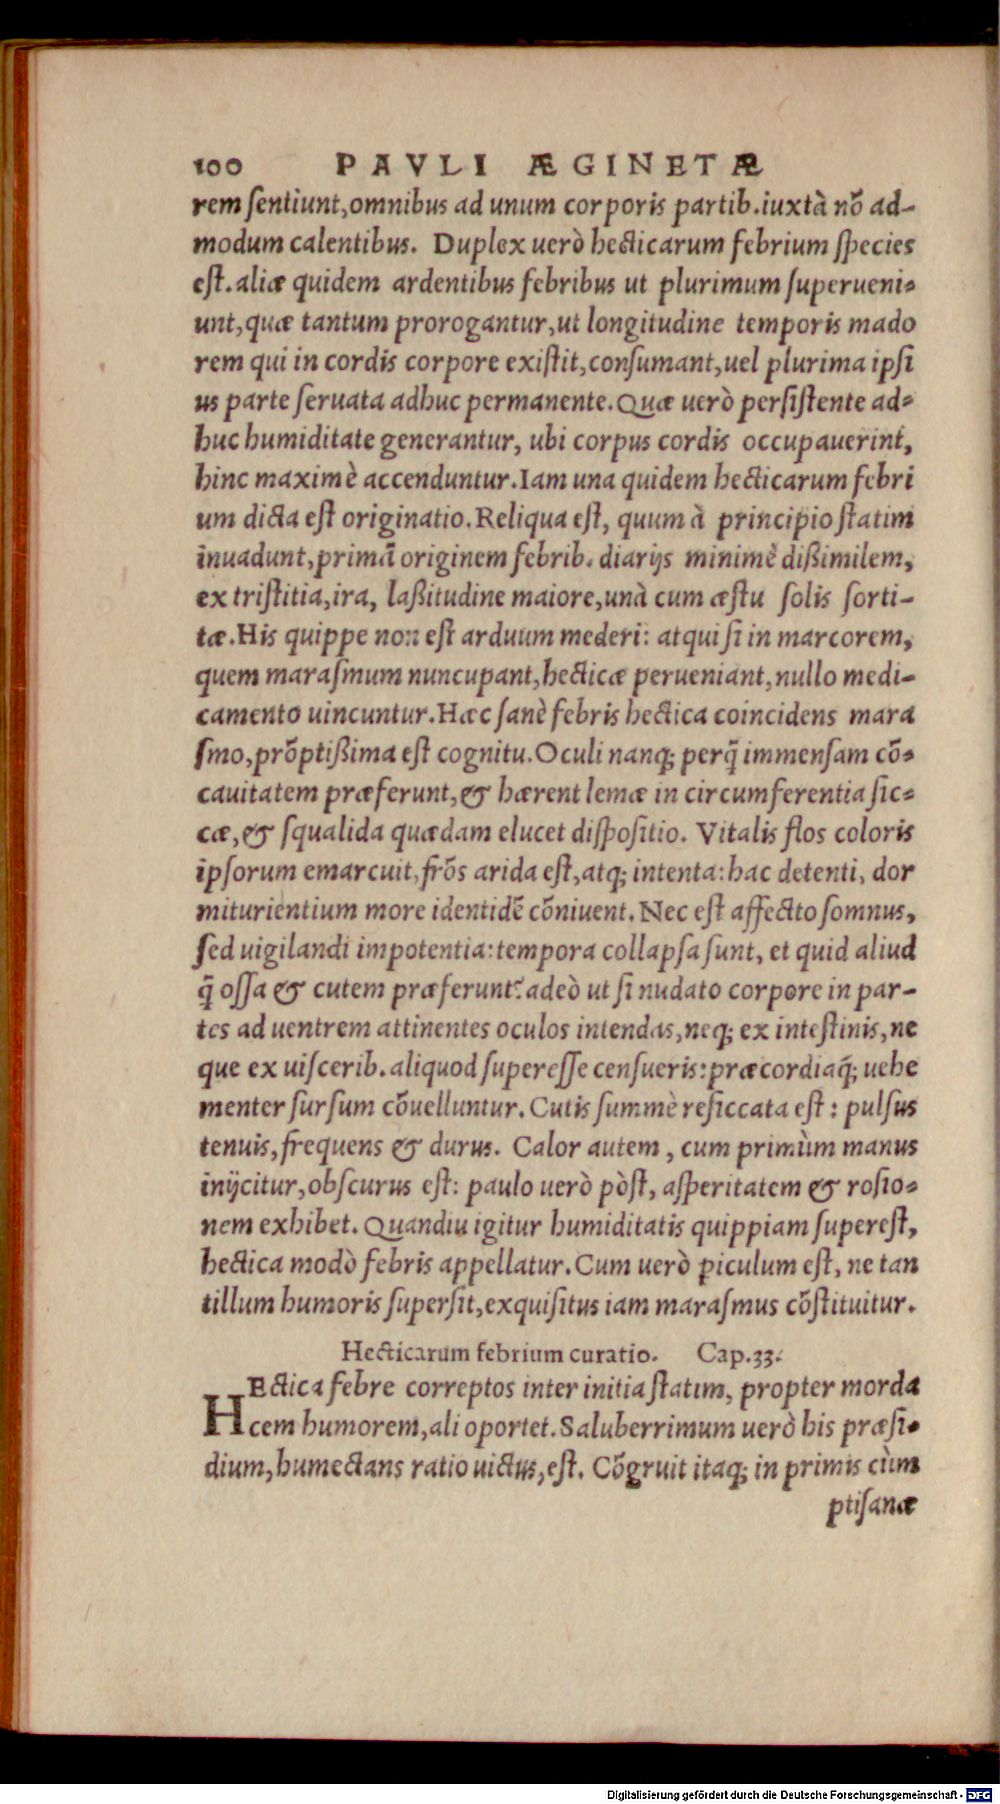 100 PAVLI ÆGINETÆ
rem ſentiunt, omnibus ad unum corporis partib. iuxtà nõ ad-
modum calentibus. Duplex uerò hecticarum febrium ſpecies
eſt. aliæ quidem ardentibus febribus ut plurimum ſuperueni-
unt, quæ tantum prorogantur, ut longitudine temporis mado
rem qui in cordis corpore exiſtit, conſumant, uel plurima ipſi
us parte ſeruata adhuc permanente. Quæ uerò perſiſtente ad-
huc humiditate generantur, ubi corpus cordis occupauerint,
hinc maximè accenduntur. Iam una quidem hecticarum febri
um dicta eſt originatio. Reliqua eſt, quum à principio ſtatim
inuadunt, primã originem febrib. diarijs minimè dißimilem,
ex triſtitia, ira, laßitudine maiore, unà cum æſtu ſolis ſorti-
tæ. His quippe non eſt arduum mederi: atqui ſi in marcorem,
quem maraſmum nuncupant, hecticæ perueniant, nullo medi-
camento uincuntur. Hæc ſanè febris hectica coincidens mara
ſmo, prõptißima eſt cognitu. Oculi nanq; perq̃ immenſam cõ-
cauitatem præferunt, & hærent lemæ in circumferentia ſic-
cæ, & ſqualida quædam elucet diſpoſitio. Vitalis flos coloris
ipſorum emarcuit, frõs arida eſt, atq; intenta: hac detenti, dor
miturientium more identidẽ cõniuent. Nec eſt affecto ſomnus,
ſed uigilandi impotentia: tempora collapſa ſunt, et quid aliud
q̃ oſſa & cutem præferunt? adeò ut ſi nudato corpore in par-
tes ad uentrem attinentes oculos intendas, neq; ex inteſtinis, ne
que ex uiſcerib. aliquod ſupereſſe cenſueris: præcordiaq́; uehe
menter ſurſum cõuelluntur. Cutis ſummè reſiccata eſt: pulſus
tenuis, frequens & durus. Calor autem, cum primùm manus
inijcitur, obſcurus eſt: paulo uerò pòſt, aſperitatem & roſio-
nem exhibet. Quandiu igitur humiditatis quippiam ſupereſt,
hectica modò febris appellatur. Cum uerò piculum eſt, ne tan
tillum humoris ſuperſit, exquiſitus iam maraſmus cõſtituitur.
Hecticarum febrium curatio. Cap. 33.
HEctica febre correptos inter initia ſtatim, propter morda
cem humorem, ali oportet. Saluberrimum uerò his præſi-
dium, humectans ratio uictus, eſt. Cõgruit itaq; in primis cùm
ptiſanæ
Digitalisierung gefördert durch die Deutsche Forschungsgemeinschaft - DFG